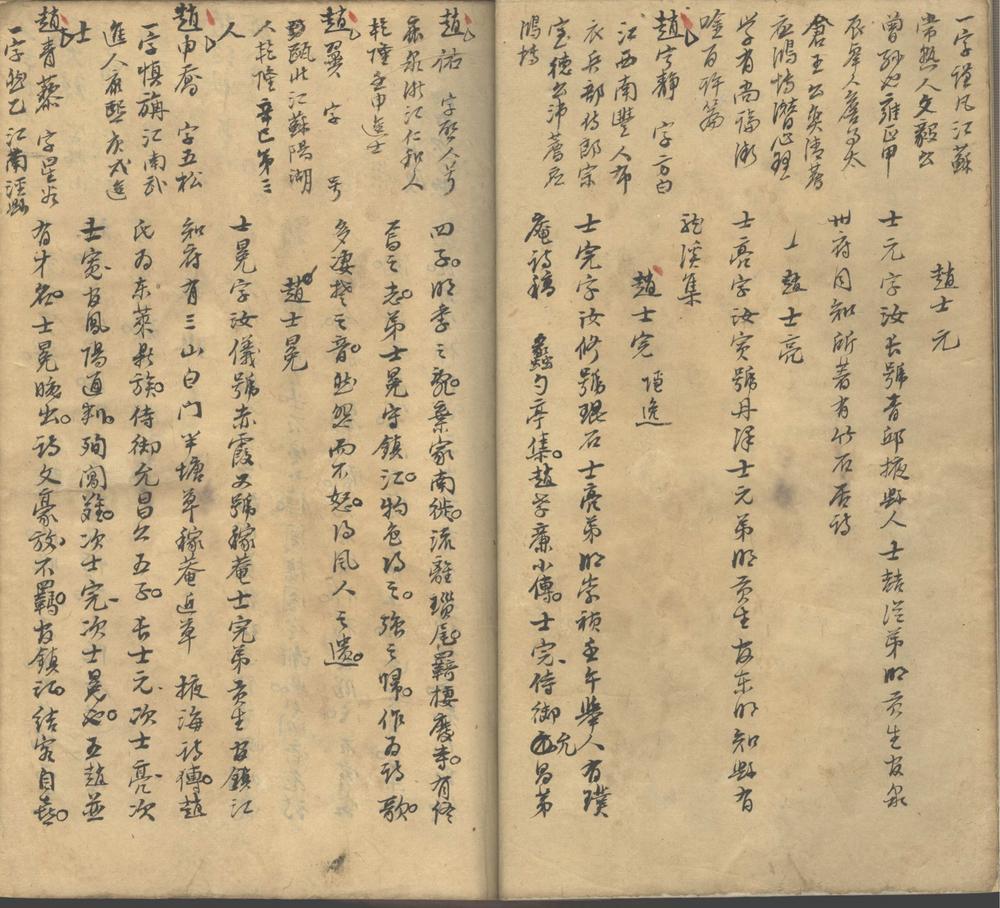 一字謹凡江蘇
常熟人文毅公
曾孫也雍正甲
辰舉人太
倉王公奕清薦
應鴻博潛心理
学有尚
百篇
趙寧靜 字方白
江西南豐人布
衣兵部侍郎宗
室德公沛薦應
鴻博
趙士元
士元字汝長號青邱掖縣人士喆從弟明貢生官泉
州府同知所著有竹石居詩
趙士亮
士亮字汝寅號丹澤士元弟明貢生官东明知縣有
龍溪集
趙士完 補逸
士完字汝修號琨石士亮弟明崇禎壬午舉人有璞
庵詩稿 蠡勺亭集趙孝廉小傳士完侍御允昌第
趙祐 字啓人号
鹿泉浙江仁和人
乾隆壬申進士
趙翼 字 号
甌北江蘇陽湖
人乾隆辛巳第三
人
趙申喬 字五松
一字慎旃江南武
進人康熙庚戌進
士
趙青藜 字星
一字然乙江南涇縣
四子明季之亂棄家南徙流離瑣尾羈棲廢寺有終
焉之志弟士冕守鎮江物色得之強之歸作为詩歌
多凄楚之音然怨而不怒得風人之遺
趙士冕
士冕字汝儀號赤霞又號稼菴士完弟貢生官鎮江
知府有三山白门半塘草稼菴近草 掖海詩傳趙
氏为东萊鼎族侍御允昌公五子長士元次士亮次
士寬官鳳陽通判殉闖難次士完次士冕也五趙並
有才名士冕晚出詩文豪放不羈官鎮江結客自喜